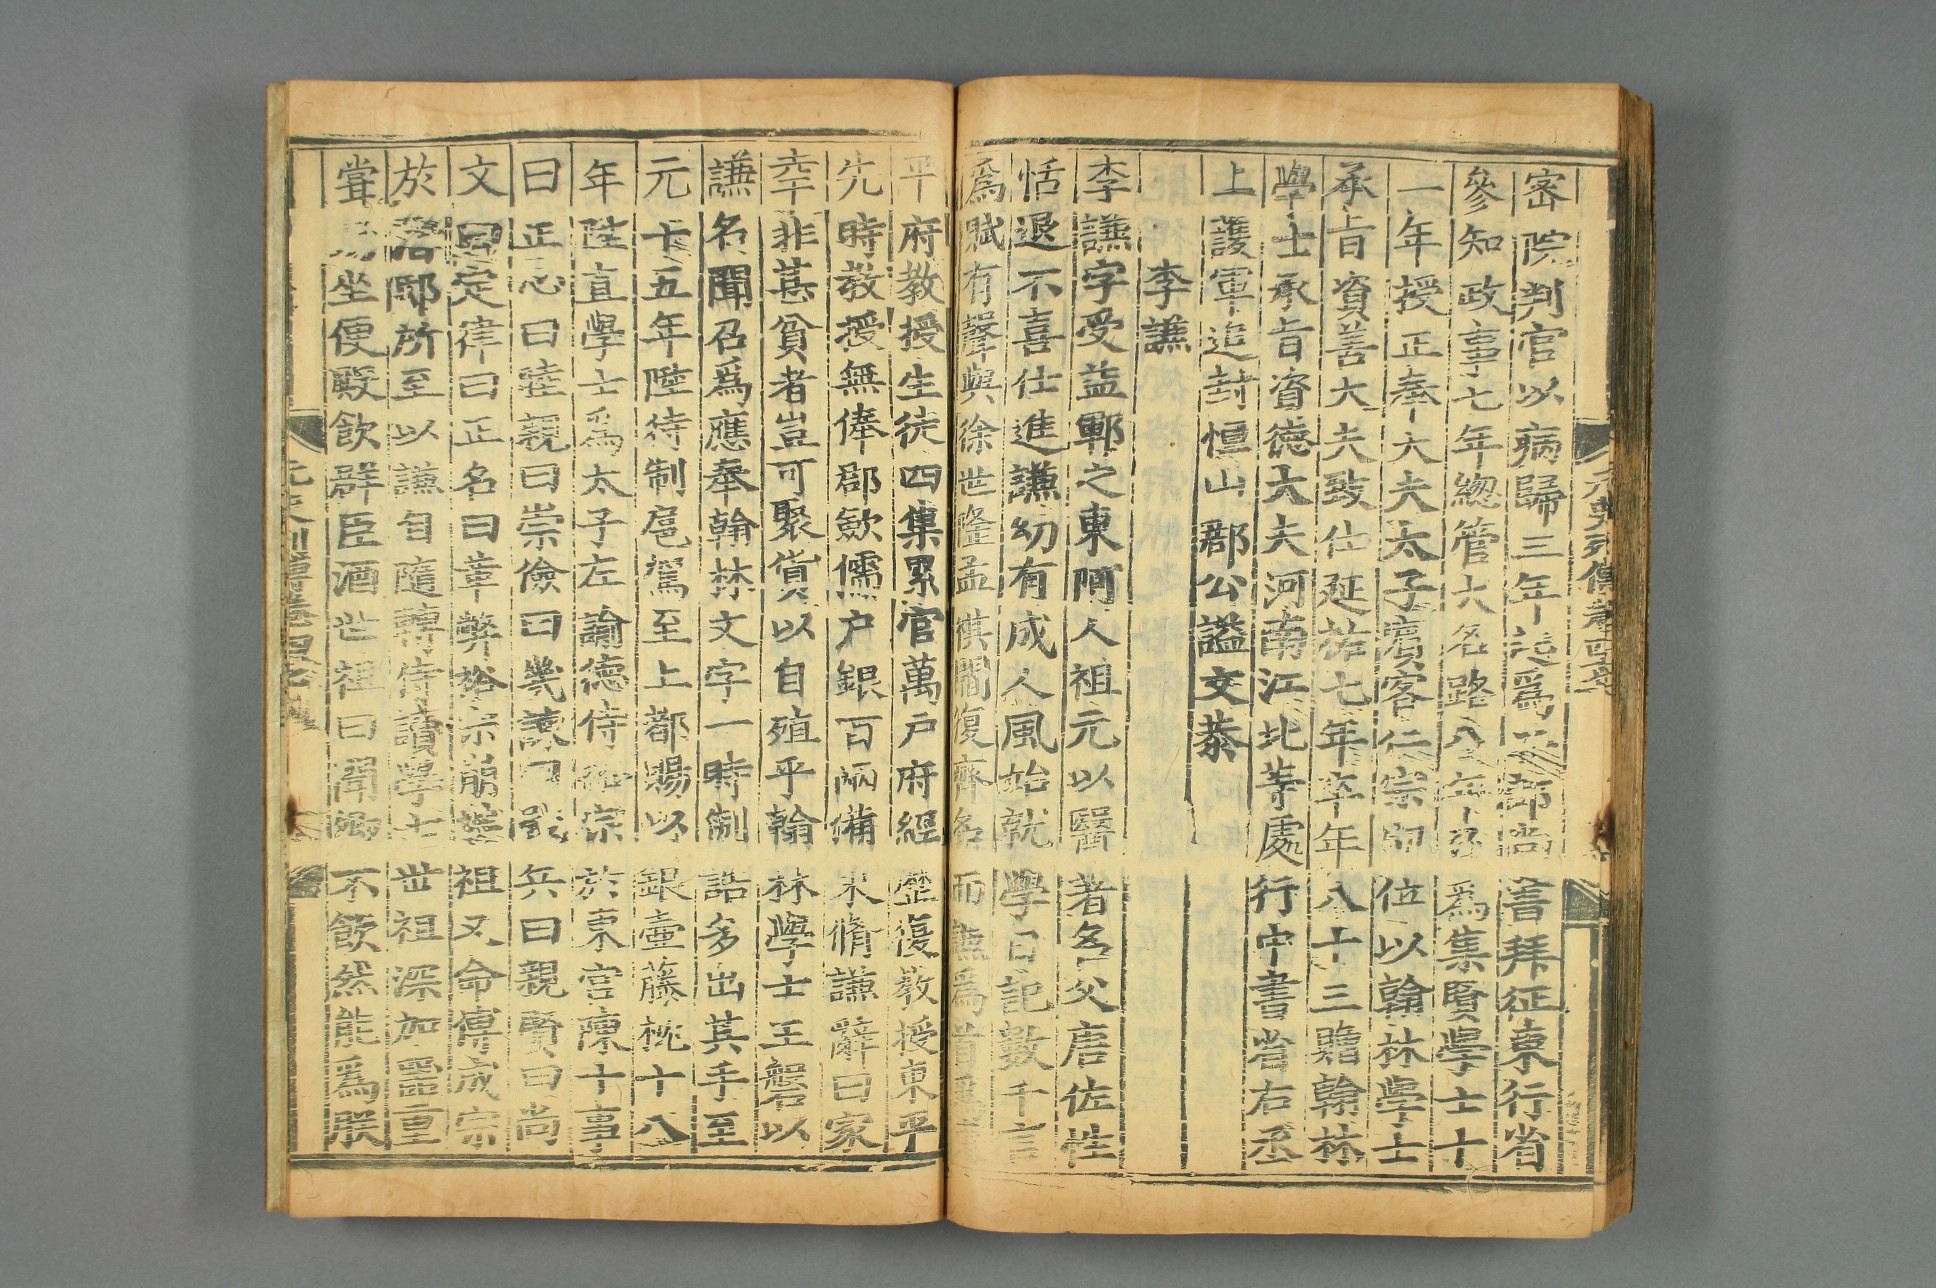 密院判官以病歸三年起爲部尚書拜征東行省
參知政事七年總管大名路八年爲集賢學士十
一年授正奉大夫太子賓客仁宗卽位以翰林學士
承旨資善大夫致仕延祐七年卒年八十三贈翰林
學士承旨資德大夫河南江北等處行中書省右丞
上護軍追封恒山郡公謚文恭
李謙
李謙字受益鄆之東阿人祖元以醫著名父唐佐性
恬退不喜仕進謙幼有成人風始就學日記數千言
爲賦有聲與徐世隆孟祺閻復齊名而謙爲首爲
平府教授生徒四集累官萬戶府經歷復教授東平
先時教授無俸郡斂儒戶銀百兩備束脩謙辭曰家
幸非甚貧者豈可聚貨以自殖乎翰林學士王磐以
謙名聞召爲應奉翰林文字一時制誥多出其手至
元十五年陞待制扈駕至上都賜以銀壺藤枕十八
年陞直學士爲太子左諭德侍裕宗於東宮陳十事
曰正心曰睦親曰崇儉曰幾諫曰戢兵曰親賢曰尚
文曰定律曰正名曰革弊裕宗崩世祖又命傅成宗
於潛邸所至以謙自隨轉侍讀學士世祖深加器重
嘗賜坐便殿飲群臣酒世祖曰聞卿不飲然能爲朕